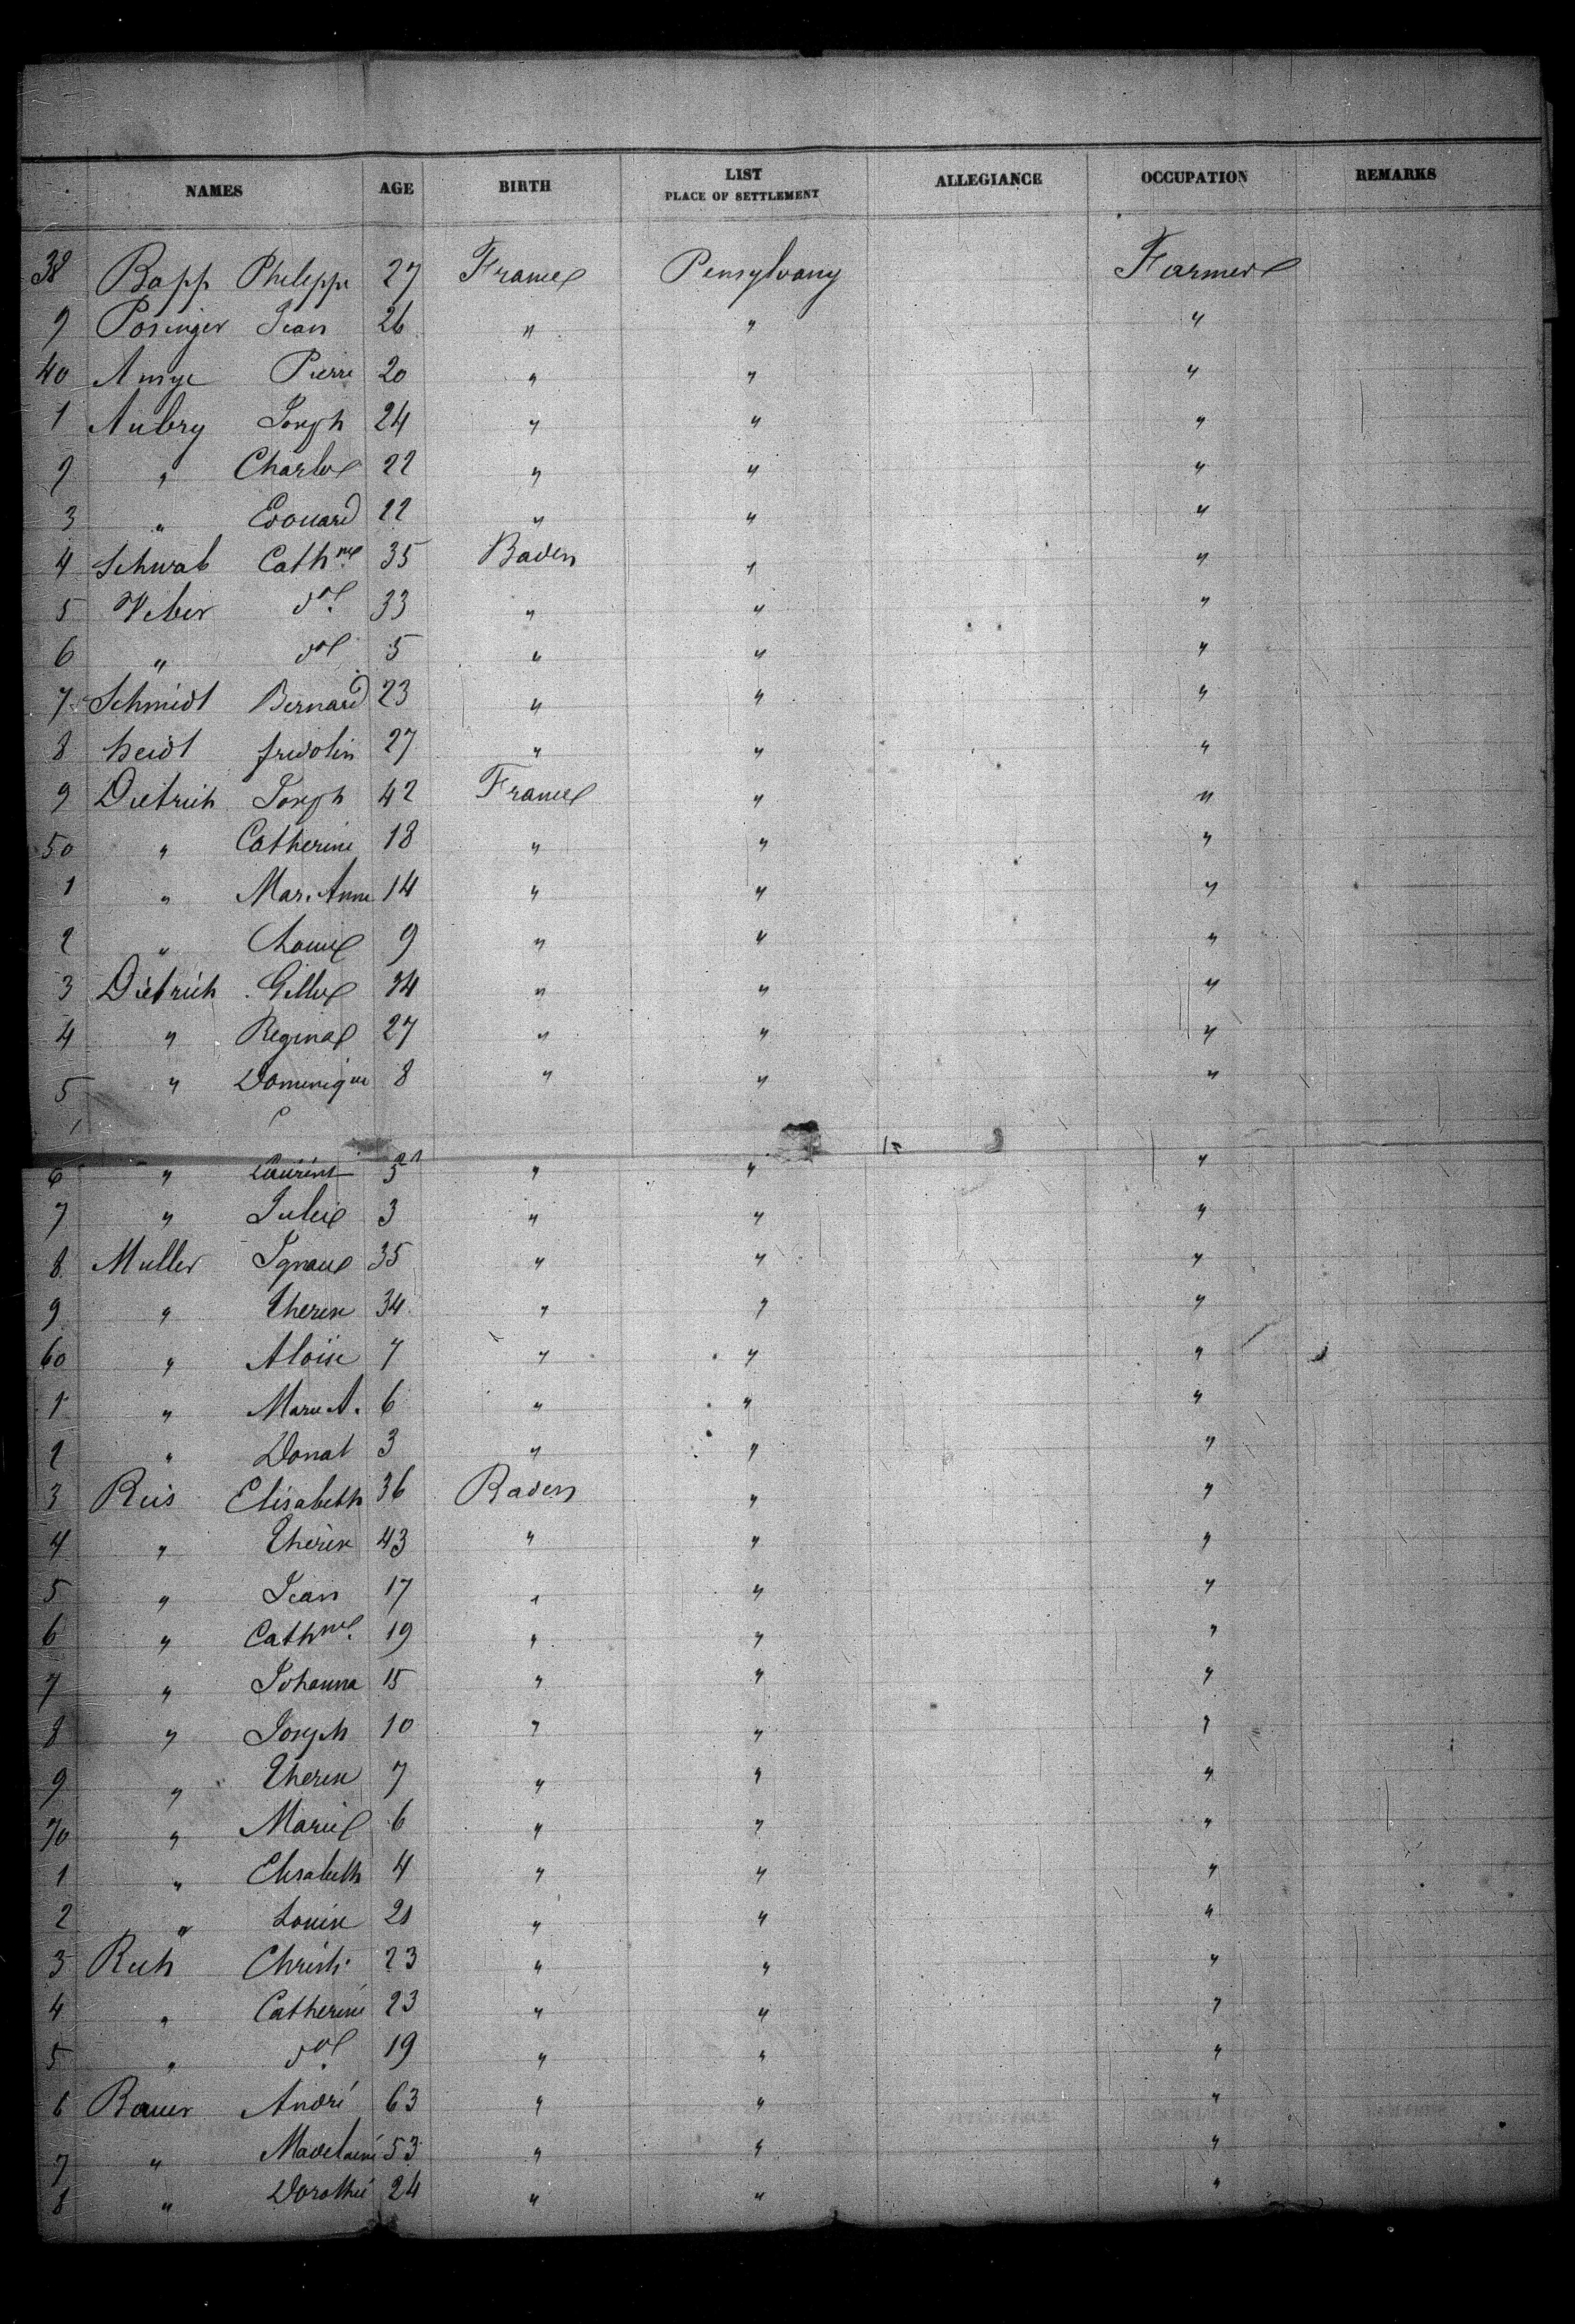 NAMES AGE BIRTH LIST PLACE OF SETTLEMENT ALLEGIANCE OCCUPATION REMARKS
38 Bapp Philippe 27 France Pensylvany Farmer
9 Posinger Jean 26 " " "
40 Pierre 20 " " "
1 Aubry Joseph 24 " " "
2 " Charles 22 " " "
3 " Edouard 22 " " "
4 Schwab Cathne 35 Baden " "
5 Veber do 33 " " "
6 " do 5 " " "
7 Schmidt Bernard 23 " " "
8 heidt fridolin 27 " " "
9 Dietrich Joseph 42 France " "
50 " Catherine 18 " " "
1 " Mar. Anne 14 " " "
2 " 9 " " "
3 Dietrich Gilles 34 " " "
4 " Regina 27 " " "
5 " Dominique 8 " " "
6 " Laurent 5 " " "
7 " Julie 3 " " "
8 Muller Ignace 35 " " "
9 " Therese 34 " " "
60 " Aloïse 7 " " "
1 " Marie A. 6 " " "
2 " Donat 3 " " "
3 Reis Elisabeth 36 Baden " "
4 " Therese 43 " " "
5 " Jean 17 " " "
6 " Cathne 19 " " "
7 " Johanna 15 " " "
8 " Joseph 10 " " "
9 " Therese 7 " " "
70 " Marie 6 " " "
1 " Elisabeth 4 " " "
2 " Louise 21 " " "
3 Ruh Christ. 23 " " "
4 " Catherine 23 " " "
5 " do 19 " " "
6 Bauer André 63 " " "
7 " Madelaine 53 " " "
8 " Dorothée 24 " " "